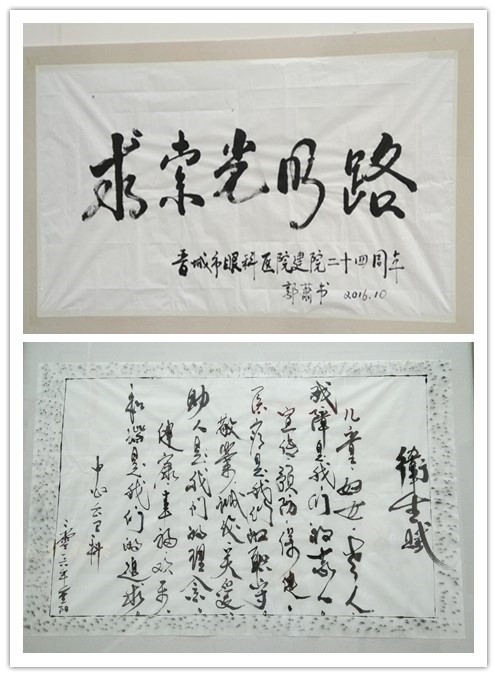 求索光明路
晋城市眼科医院建院二十四周年
郭萧书 2016.10
卫生赋
儿童、妇女、老人、
残障是我们的亲人。
宣传、预防、保健、
医疗是我们的职守。
敬业诚信关爱、
助人是我们的理念。
健康幸福欢乐、
和谐是我们的追求。